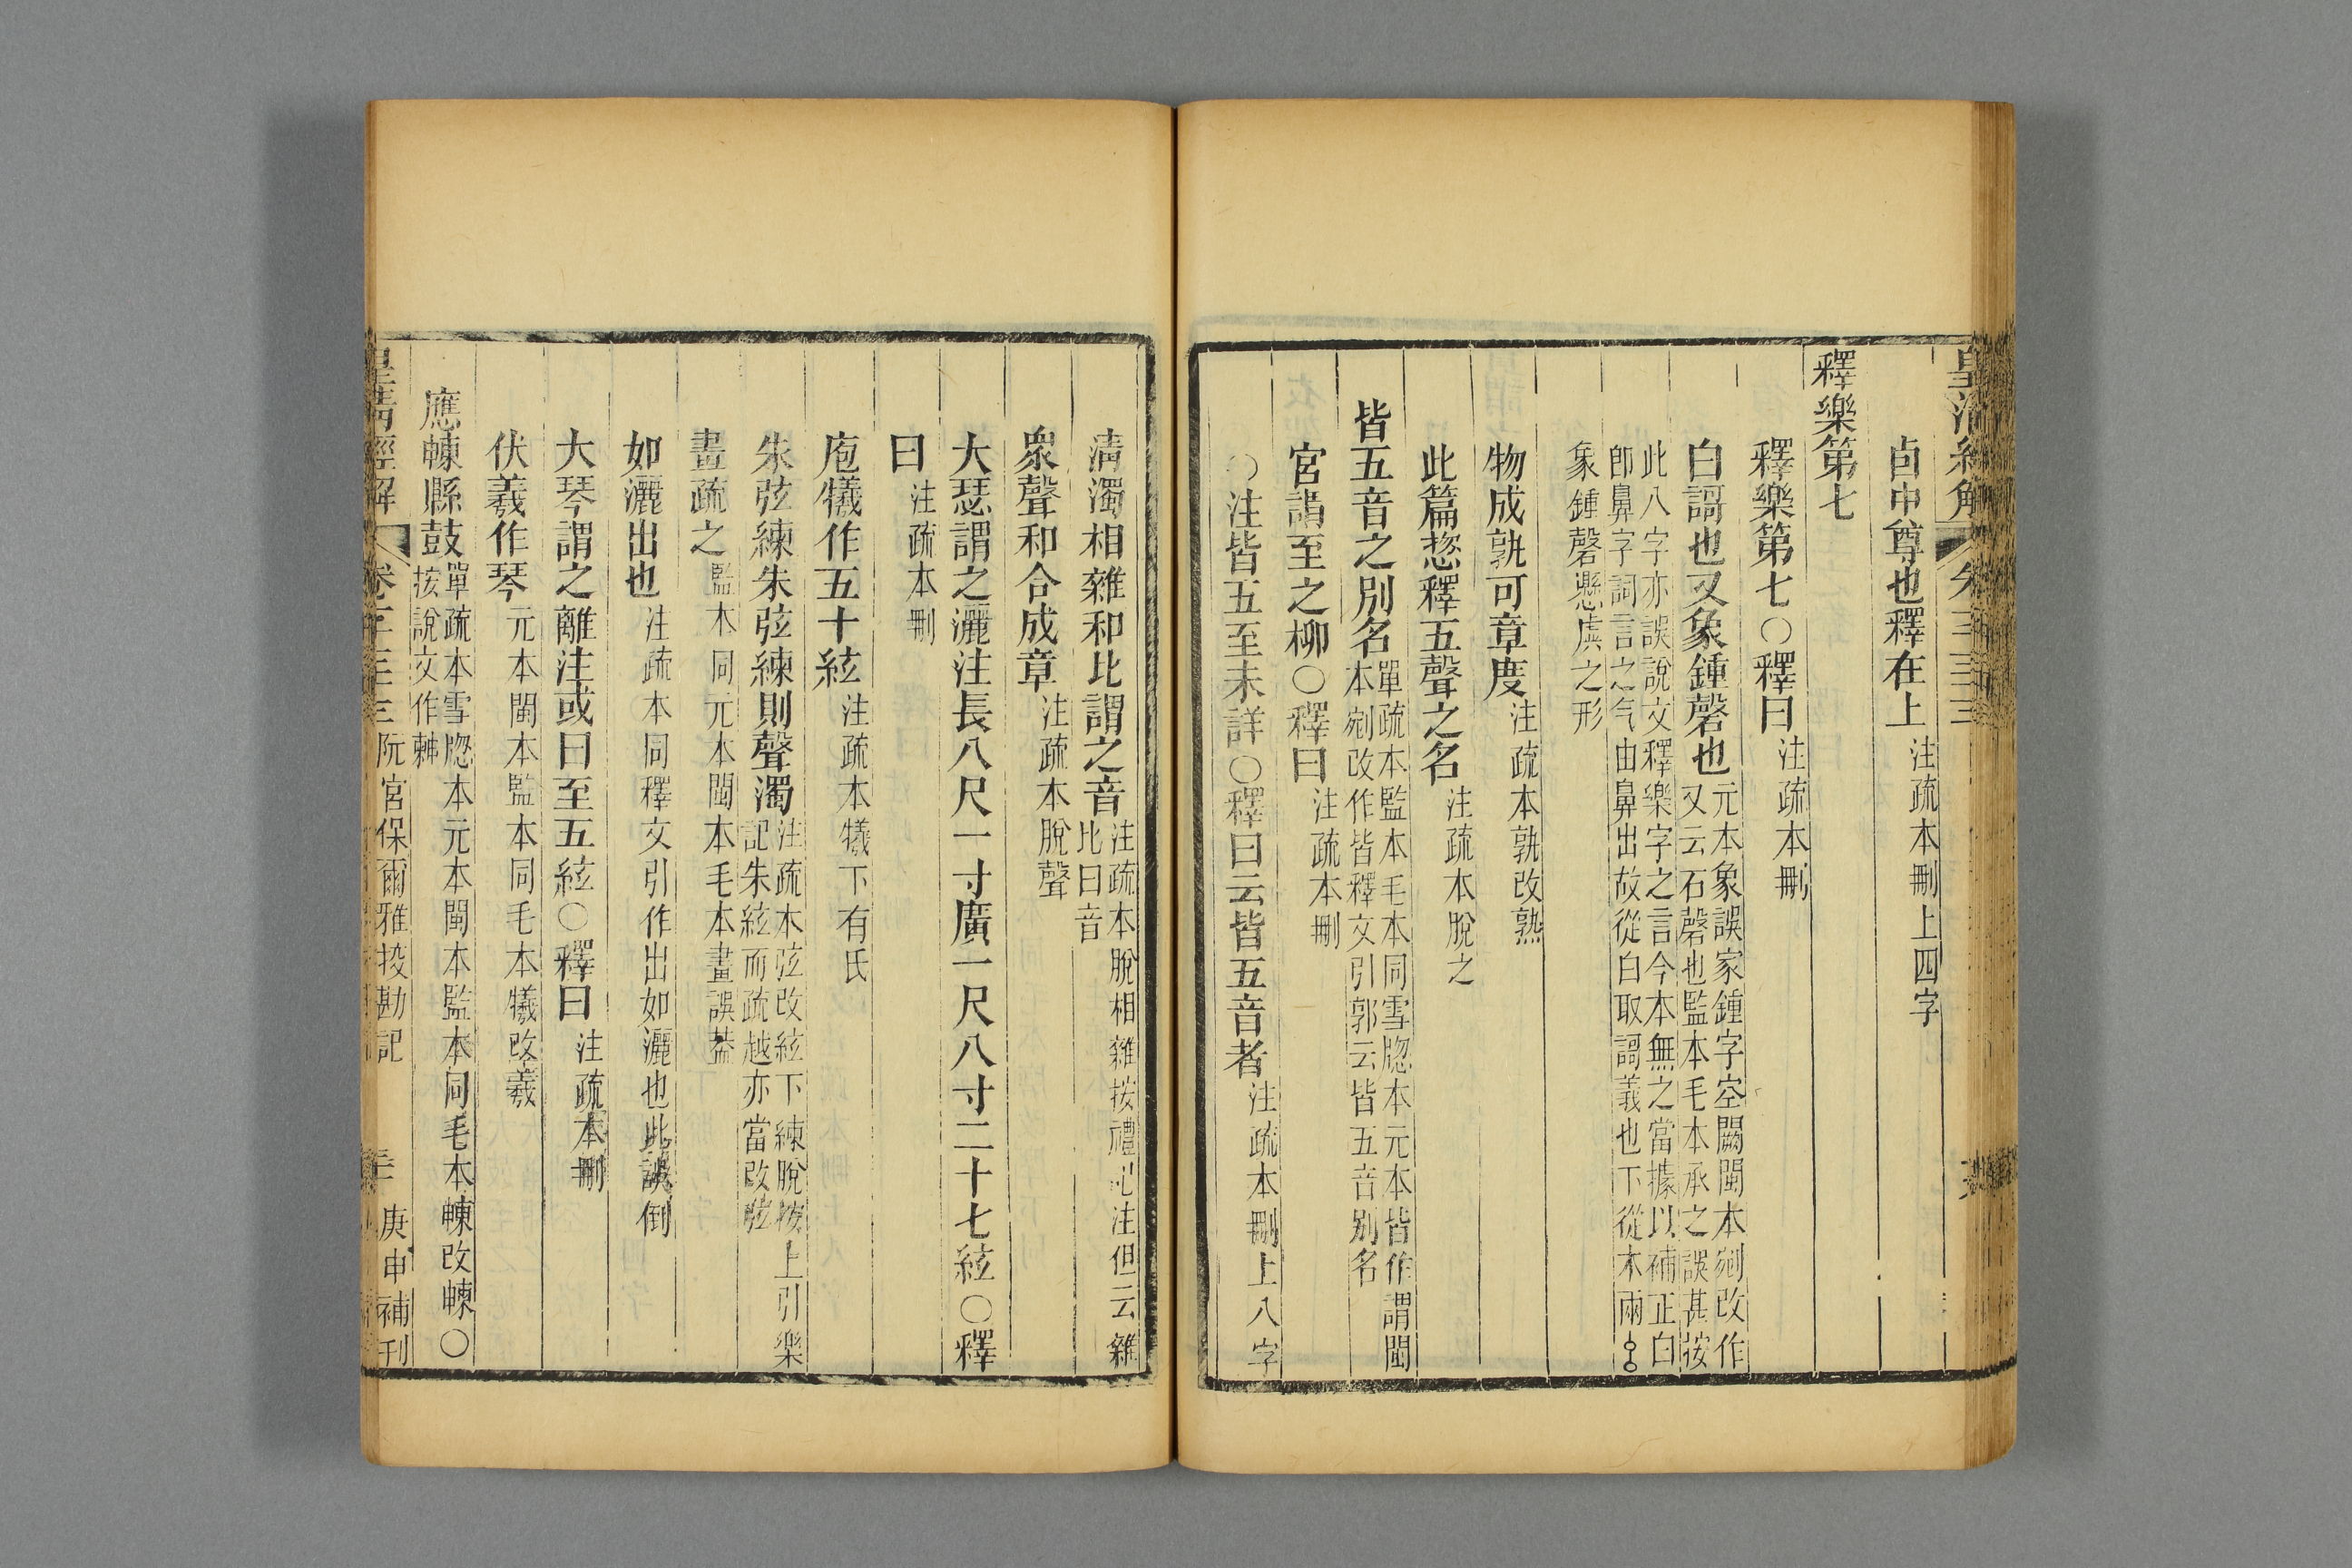 皇清經解 卷三三三
卣中尊也釋在上注疏本刪上四字
釋樂第七
釋樂第七○釋曰注疏本刪
白謌也又象鍾磬也元本象誤家鍾字空闕閩本剜改作
又云石磬也監本毛本承之誤甚按
此八字亦誤說文釋樂字之言今本無之當據以補正白
卽鼻字詞言之气由鼻出故從白取謌義也下從木兩
象鍾磬懸虡之形
物成孰可章度注疏本孰改熟
此篇惣釋五聲之名注疏本脫之
皆五音之別名單疏本監本毛本同雪牕本元本皆作謂閩
本剜改作皆釋文引郭云皆五音別名
宮謂至之柳○釋曰注疏本刪
○注皆五至未詳○釋曰云皆五音者注疏本刪上八字
清濁相雜和比謂之音注疏本脫相雜按禮記注但云雜
比曰音
衆聲和合成章注疏本脫聲
大瑟謂之灑注長八尺一寸廣一尺八寸二十七絃○釋
曰注疏本刪
庖犧作五十絃注疏本犧下有氏
朱弦練朱弦練則聲濁注疏本弦改絃下練脫按上引樂
記朱絃而疏越亦當改弦
畫疏之監本同元本閩本毛本畫誤葢
如灑出也注疏本同釋文引作出如灑也此誤倒
大琴謂之離注或曰至五絃○釋曰注疏本刪
伏羲作琴元本閩本監本同毛本犧改羲
應朄縣鼓單疏本雪牕本元本閩本監本同毛本朄改㯥○
按說文作𣌾
皇清經解 卷三三三 阮宮保爾雅挍勘記 庚申補刊